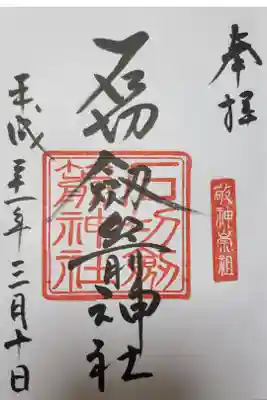 奉拝
敬神崇祖
石切劔箭神社
石切劔箭神社
平成二十一年三月十日